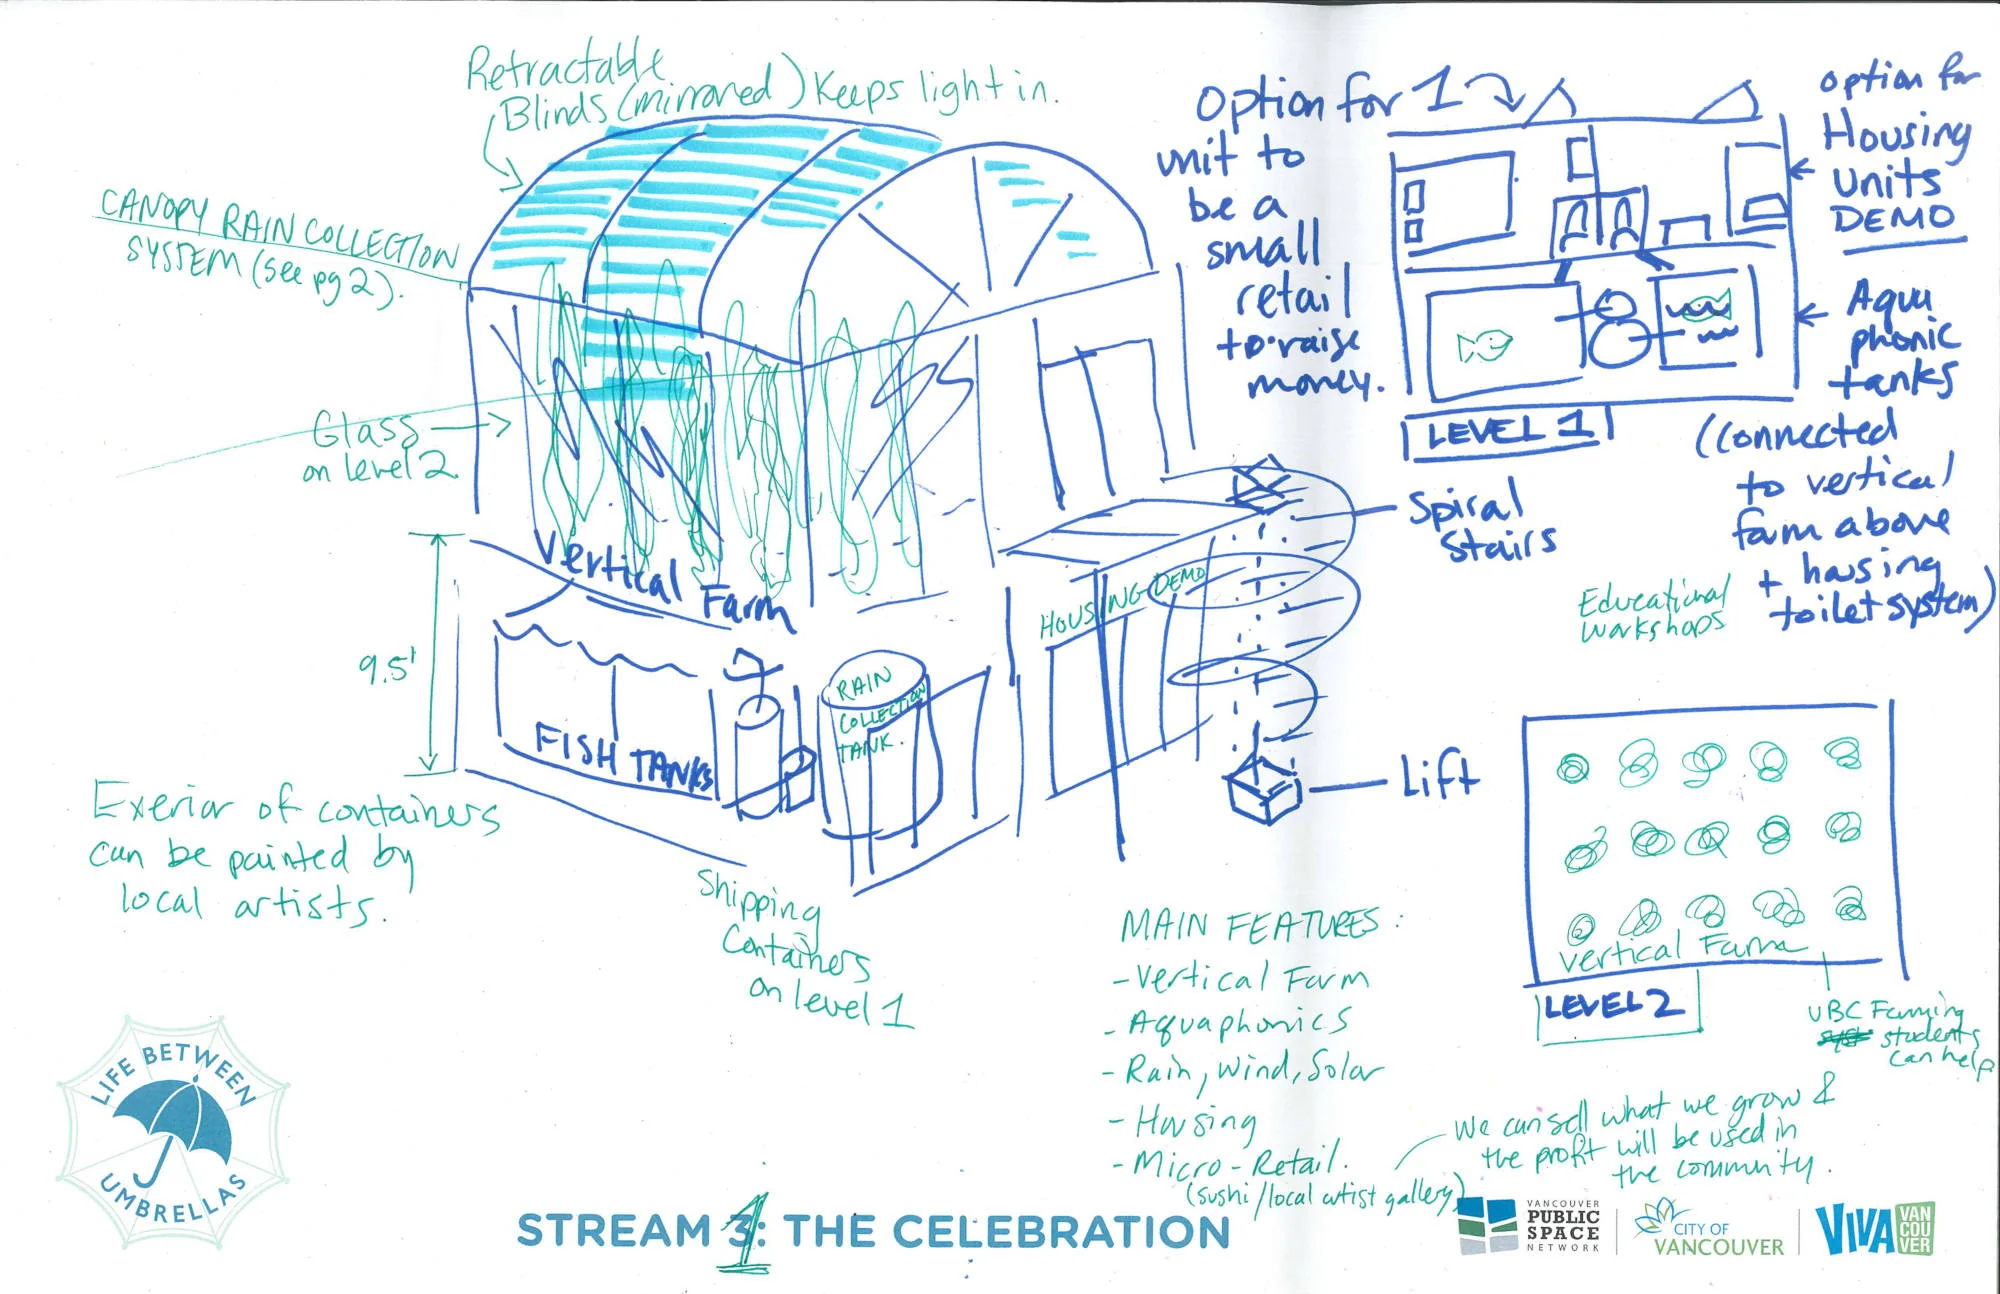 Retractable
Blinds (mirrored) Keeps light in.
CANOPY RAIN COLLECTION
SYSTEM (see pg 2).
Glass
on level 2
9.5'
Exerior of containers
can be painted by
local artists.
Vertical Farm
FISH TANKS
RAIN
COLLECTION
TANK.
HOUSING DEMO
Shipping
Containers
on level 1
Option for 1
unit to
be a
small
retail
to raise
money.
option for
Housing
Units
DEMO
Aqua
phonic
tanks
(connected
to vertical
farm above
+ housing
toilet system)
LEVEL 1
Spiral
Stairs
Lift
Educational
Workshops
Vertical Farm
LEVEL 2
UBC Farming
students
can help
MAIN FEATURES:
- Vertical Farm
- Aquaphonics
- Rain, Wind, Solar
- Housing
- Micro-Retail.
(sushi/local artist gallery)
We can sell what we grow &
the profit will be used in
the community.
LIFE BETWEEN
UMBRELLAS
STREAM 1: THE CELEBRATION
VANCOUVER
PUBLIC
SPACE
NETWORK
CITY OF
VANCOUVER
VIVA
VAN
COU
VER